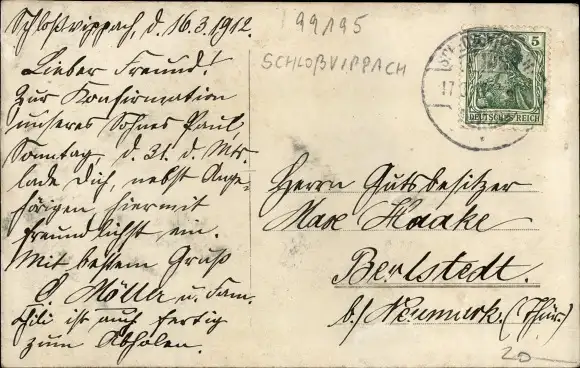 Schloßvippach, d. 16.3.1912.
Lieber Freund!
Zur Konfirmation
unseres Sohnes Paul,
Sonntag, d. 31. d. Mts.
lade Dich, nebst Ange-
hörigen hiermit
freundlichst ein.
Mit bestem Gruß
O. Möller u. Fam.
ist auch fertig
zum Abholen.
99195
SCHLOßVIPPACH
5
DEUTSCHES REICH
17
Herrn Gutsbesitzer
Max Haake
Berlstedt.
b/ Neumark. (Thür.)
20